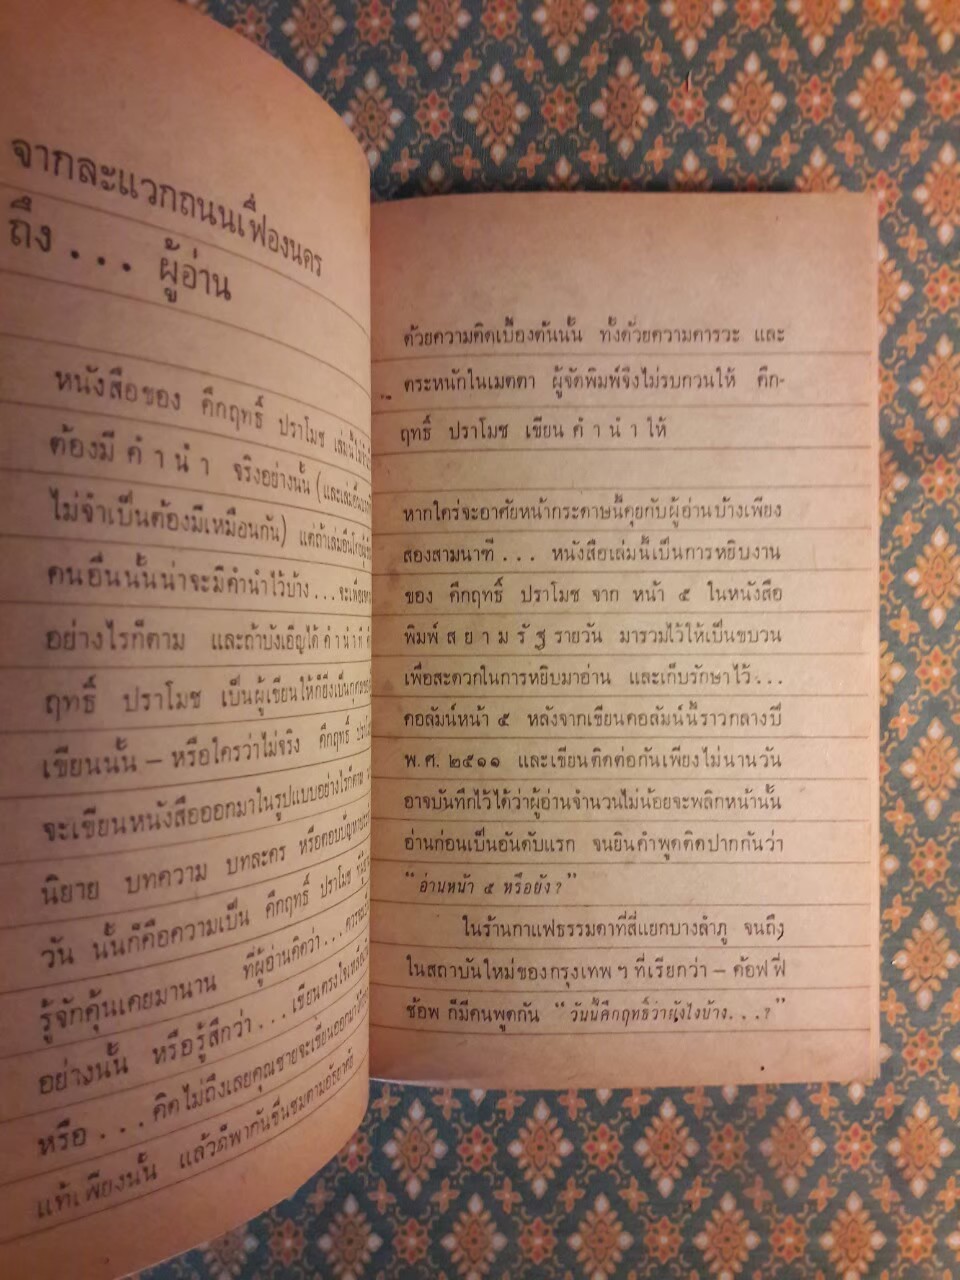 จากละแวกถนนเฟื่องนคร
ถึง . . . ผู้อ่าน
หนังสือของ คึกฤทธิ์ ปราโมช เล่มนี้ไม่
ต้องมี คำนำ จริงอย่างนั้น (และเล่มอื่น
ไม่จำเป็นต้องมีเหมือนกัน) แต่ถ้าเล่มอื่นโดย
คนอื่นนั้นน่าจะมีคำนำไว้บ้าง...จะเพื่อ
อย่างไรก็ตาม และถ้าบังเอิญได้ คำนำที่
ฤทธิ์ ปราโมช เป็นผู้เขียนให้ก็ยิ่งเป็น
เขียนนั้น – หรือใครว่าไม่จริง คึกฤทธิ์
จะเขียนหนังสือออกมาในรูปแบบอย่างไรก็ตาม
นิยาย บทความ บทละคร หรือตอบปัญหา
วัน นั้นก็คือความเป็น คึกฤทธิ์ ปราโมช
รู้จักคุ้นเคยมานาน ที่ผู้อ่านคิดว่า...
อย่างนั้น หรือรู้สึกว่า...เขียนตรงใจ
หรือ . . . คิดไม่ถึงเลยคุณชายจะเขียนออกมา
แท้เพียงนั้น แล้วก็พากันชื่นชมตามอัธยาศัย
ด้วยความคิดเบื้องต้นนั้น ทั้งด้วยความคารวะ และ
ตระหนักในเมตตา ผู้จัดพิมพ์จึงไม่รบกวนให้ คึก-
ฤทธิ์ ปราโมช เขียน คำนำ ให้
หากใคร่จะอาศัยหน้ากระดาษนี้คุยกับผู้อ่านบ้างเพียง
สองสามนาที . . . หนังสือเล่มนี้เป็นการหยิบงาน
ของ คึกฤทธิ์ ปราโมช จาก หน้า ๕ ในหนังสือ
พิมพ์ ส ย า ม รั ฐ รายวัน มารวมไว้ให้เป็นขบวน
เพื่อสะดวกในการหยิบมาอ่าน และเก็บรักษาไว้...
คอลัมน์หน้า ๕ หลังจากเขียนคอลัมน์นี้ราวกลางปี
พ.ศ. ๒๕๑๑ และเขียนติดต่อกันเพียงไม่นานวัน
อาจบันทึกไว้ได้ว่าผู้อ่านจำนวนไม่น้อยจะพลิกหน้านั้น
อ่านก่อนเป็นอันดับแรก จนยินคำพูดติดปากกันว่า
“อ่านหน้า ๕ หรือยัง?”
ในร้านกาแฟธรรมดาที่สี่แยกบางลำภู จนถึง
ในสถาบันใหม่ของกรุงเทพ ฯ ที่เรียกว่า – ค้อฟฟี่
ช้อพ ก็มีคนพูดกัน “วันนี้คึกฤทธิ์ว่ายังไงบ้าง...?”